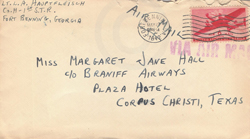 Lt. L.A. Hauptfleisch
Co. H-1ST S.T.R.
Fort Benning, Georgia
AIR
VIA AIR MAIL
Miss Margaret Jane Hall
c/o Braniff Airways
Plaza Hotel
Corpus Christi, Texas